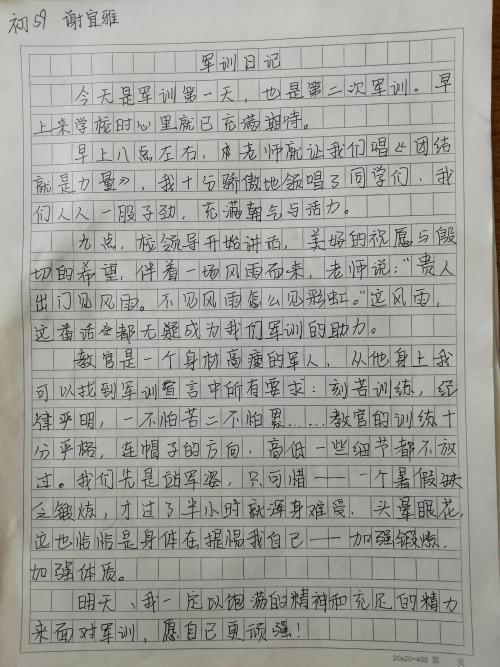 初59 谢宜雅
军训日记
今天是军训第一天，也是第二次军训。早
上来学校时心里就已充满期待。
早上八点左右，老师就让我们唱《团结
就是力量》，我十分骄傲地领唱了同学们，我
们人人一股子劲，充满朝气与活力。
九点，校领导开始讲话，美好的祝愿与殷
切的希望，伴着一场风雨而来，老师说：“贵人
出门见风雨。不见风雨怎么见彩虹。”这风雨，
这番话都无疑成为我们军训的助力。
教官是一个身材高瘦的军人，从他身上我
可以找到军训宣言中所有要求：刻苦训练，纪
律严明，一不怕苦二不怕累……教官的训练十
分严格，连帽子的方向，高低一些细节都不放
过。我们先是站军姿，只可惜——一个暑假缺
乏锻炼，才过了半小时就浑身难受，头晕眼花，
这也恰恰是身体在提醒我自己——加强锻炼，
加强体质。
明天，我一定以饱满的精神和充足的精力
来面对军训，愿自己更顽强！
20×20=400 第 页